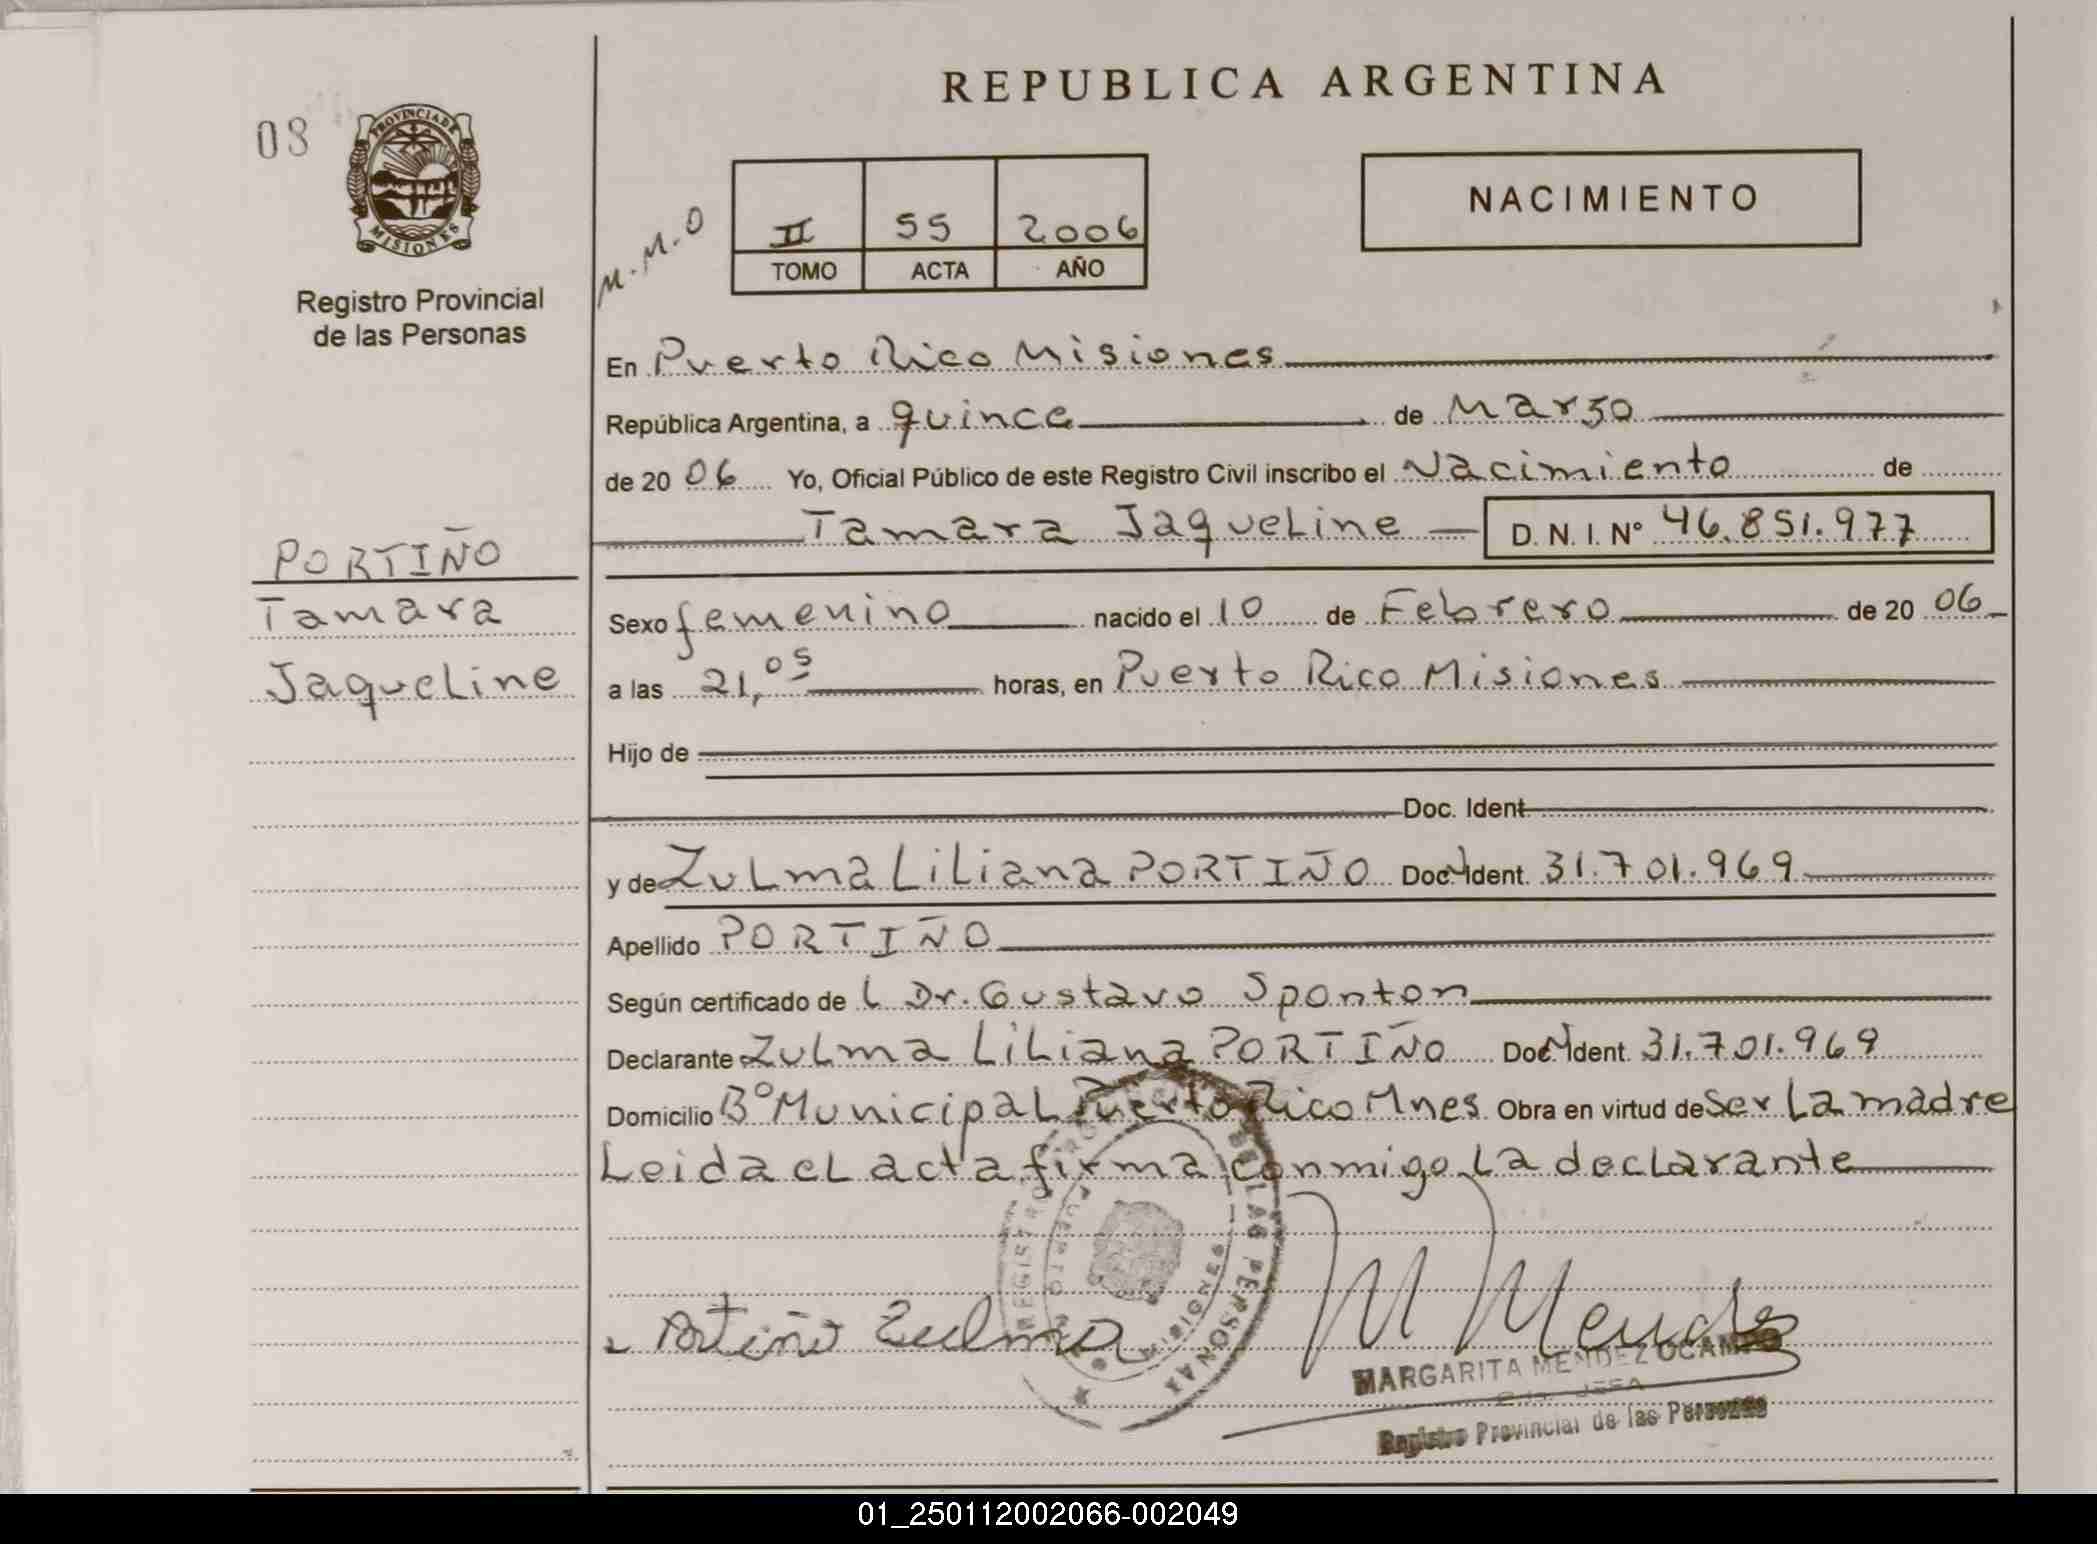 REPUBLICA ARGENTINA
08
PROVINCIA DE
MISIONES
Registro Provincial
de las Personas
M.M.O
II 55 2006
TOMO ACTA AÑO
NACIMIENTO
En Puerto Rico Misiones
República Argentina, a quince de Marzo
de 20 06 Yo, Oficial Público de este Registro Civil inscribo el Nacimiento de
Tamara Jaqueline D. N. I. Nº 46.851.977
PORTIÑO
Tamara
Jaqueline
Sexo femenino nacido el 10 de Febrero de 20 06
a las 21,05 horas, en Puerto Rico Misiones
Hijo de
Doc. Ident.
y de Zulma Liliana PORTIÑO Doc. Ident. 31.701.969
Apellido PORTIÑO
Según certificado de l Dr. Gustavo Sponton
Declarante Zulma Liliana PORTIÑO Doc. Ident. 31.701.969
Domicilio Bº Municipal Puerto Rico Mnes. Obra en virtud de Ser La madre
Leida el acta firma conmigo La declarante
REGISTRO DE LAS PERSONAS
PUERTO RICO MISIONES
Portiño Zulma
M Mendez
MARGARITA MENDEZ OCAMPO
JEFA
Registro Provincial de las Personas
01_250112002066-002049